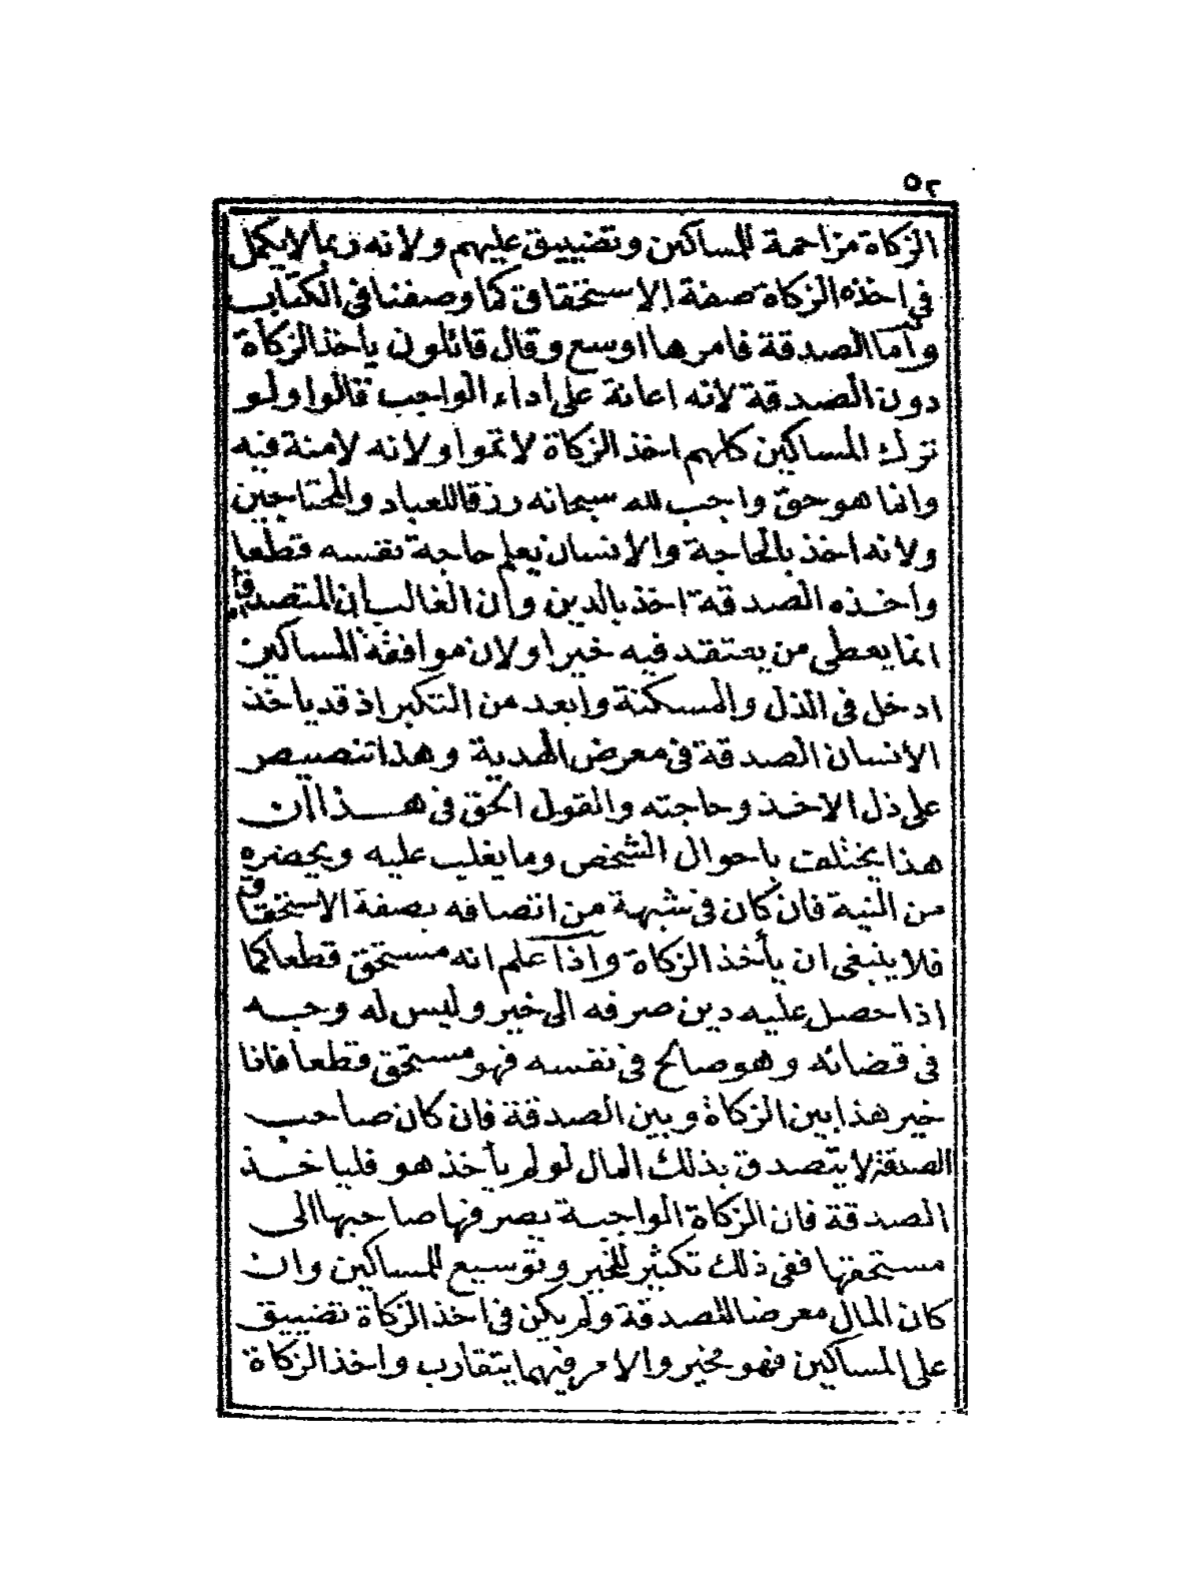 ٥٢
الزكاة مزاحمة للمساكين وتضييق عليهم ولانه ربما لا يكمل
في اخذه الزكاة صفة الاستحقاق كما وصفنا في الكتاب
وأما الصدقة فامرها اوسع وقال قائلون يأخذ الزكاة
دون الصدقة لانه اعانة على اداء الواجب قالوا ولو
ترك المساكين كلهم اخذ الزكاة لاثموا ولانه لامنة فيه
وانما هو حق واجب لله سبحانه رزقا للعباد والمحتاجين
ولانه اخذ بالحاجة والانسان يعلم حاجة نفسه قطعا
واخذه الصدقة اخذ بالدين وأن الغالب ان المتصدق
انما يعطي من يعتقد فيه خيرا ولان موافقة المساكين
ادخل في الذل والمسكنة وابعد من التكبر اذ قد يأخذ
الانسان الصدقة في معرض الهدية وهذا تنصيص
على ذل الاخذ وحاجته والقول الحق في هذا ان
هذا يختلف باحوال الشخص وما يغلب عليه ويحضره
من النية فان كان في شبهة من اتصافه بصفة الاستحقاق
فلا ينبغي ان يأخذ الزكاة واذا علم انه مستحق قطعا كما
اذا حصل عليه دين صرفه الى خير وليس له وجه
في قضائه وهو صالح في نفسه فهو مستحق قطعا فاذا
خير هذا بين الزكاة وبين الصدقة فان كان صاحب
الصدقة لا يتصدق بذلك المال لو لم يأخذ هو فليأخذ
الصدقة فان الزكاة الواجبة يصرفها صاحبها الى
مستحقها ففي ذلك تكثير للخير وتوسيع للمساكين وان
كان المال معرضا للصدقة ولم يكن في اخذ الزكاة تضييق
على المساكين فهو مخير والامر فيهما يتقارب واخذ الزكاة